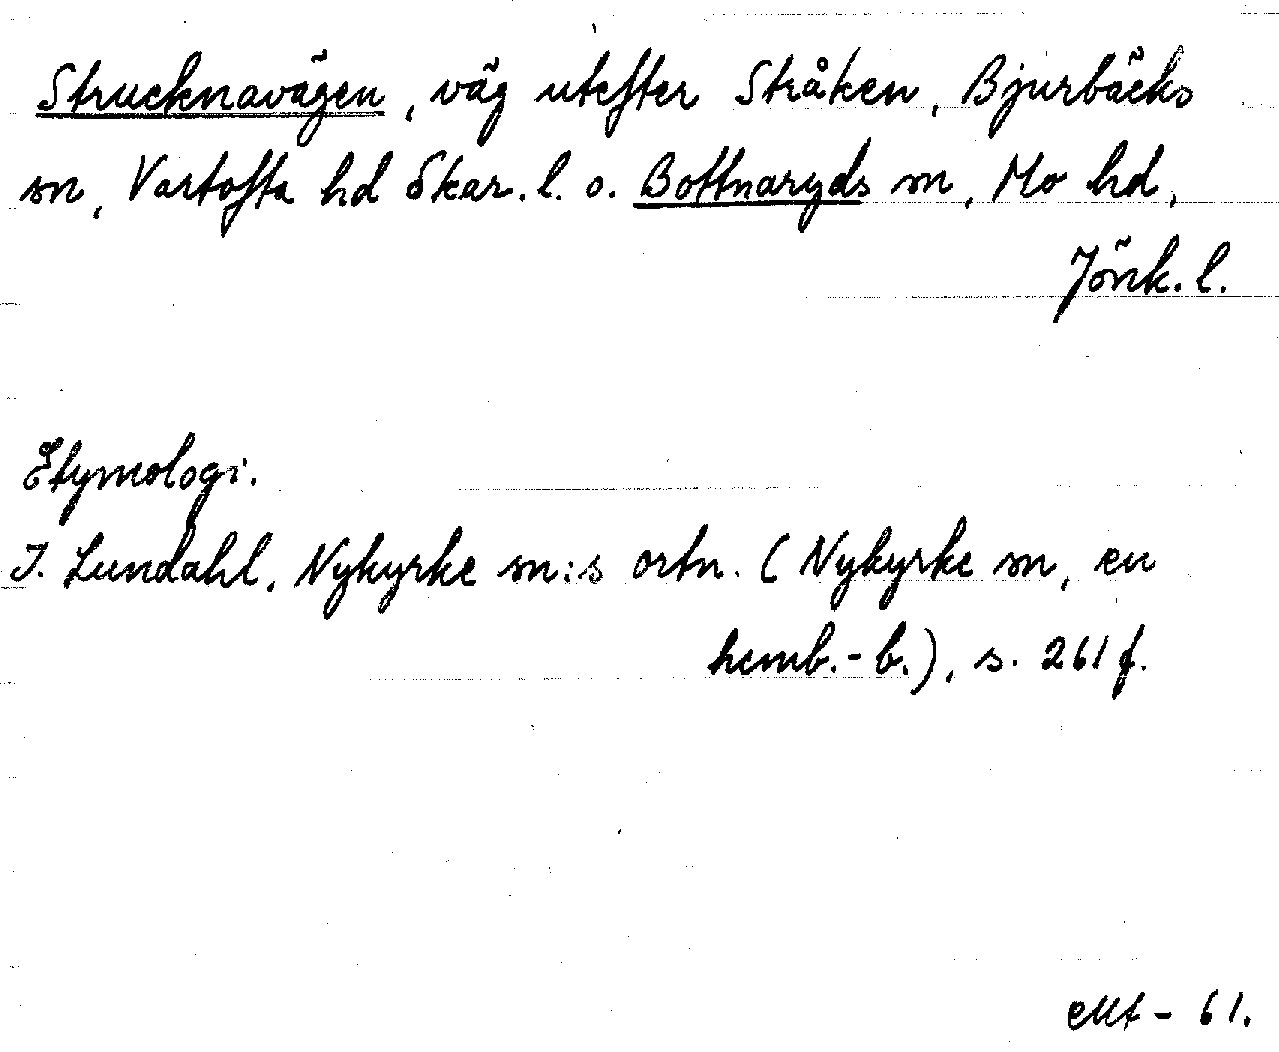 Strucknavägen, väg utefter Stråken, Bjurbäcks
sn, Vartofta hd Skar. l. o. Bottnaryds sn, Mo hd,
Jönk. l.
Etymologi.
I. Lundahl, Nykyrke sn:s ortn. (Nykyrke sn, en
hemb.-b.), s. 261 f.
- 61.